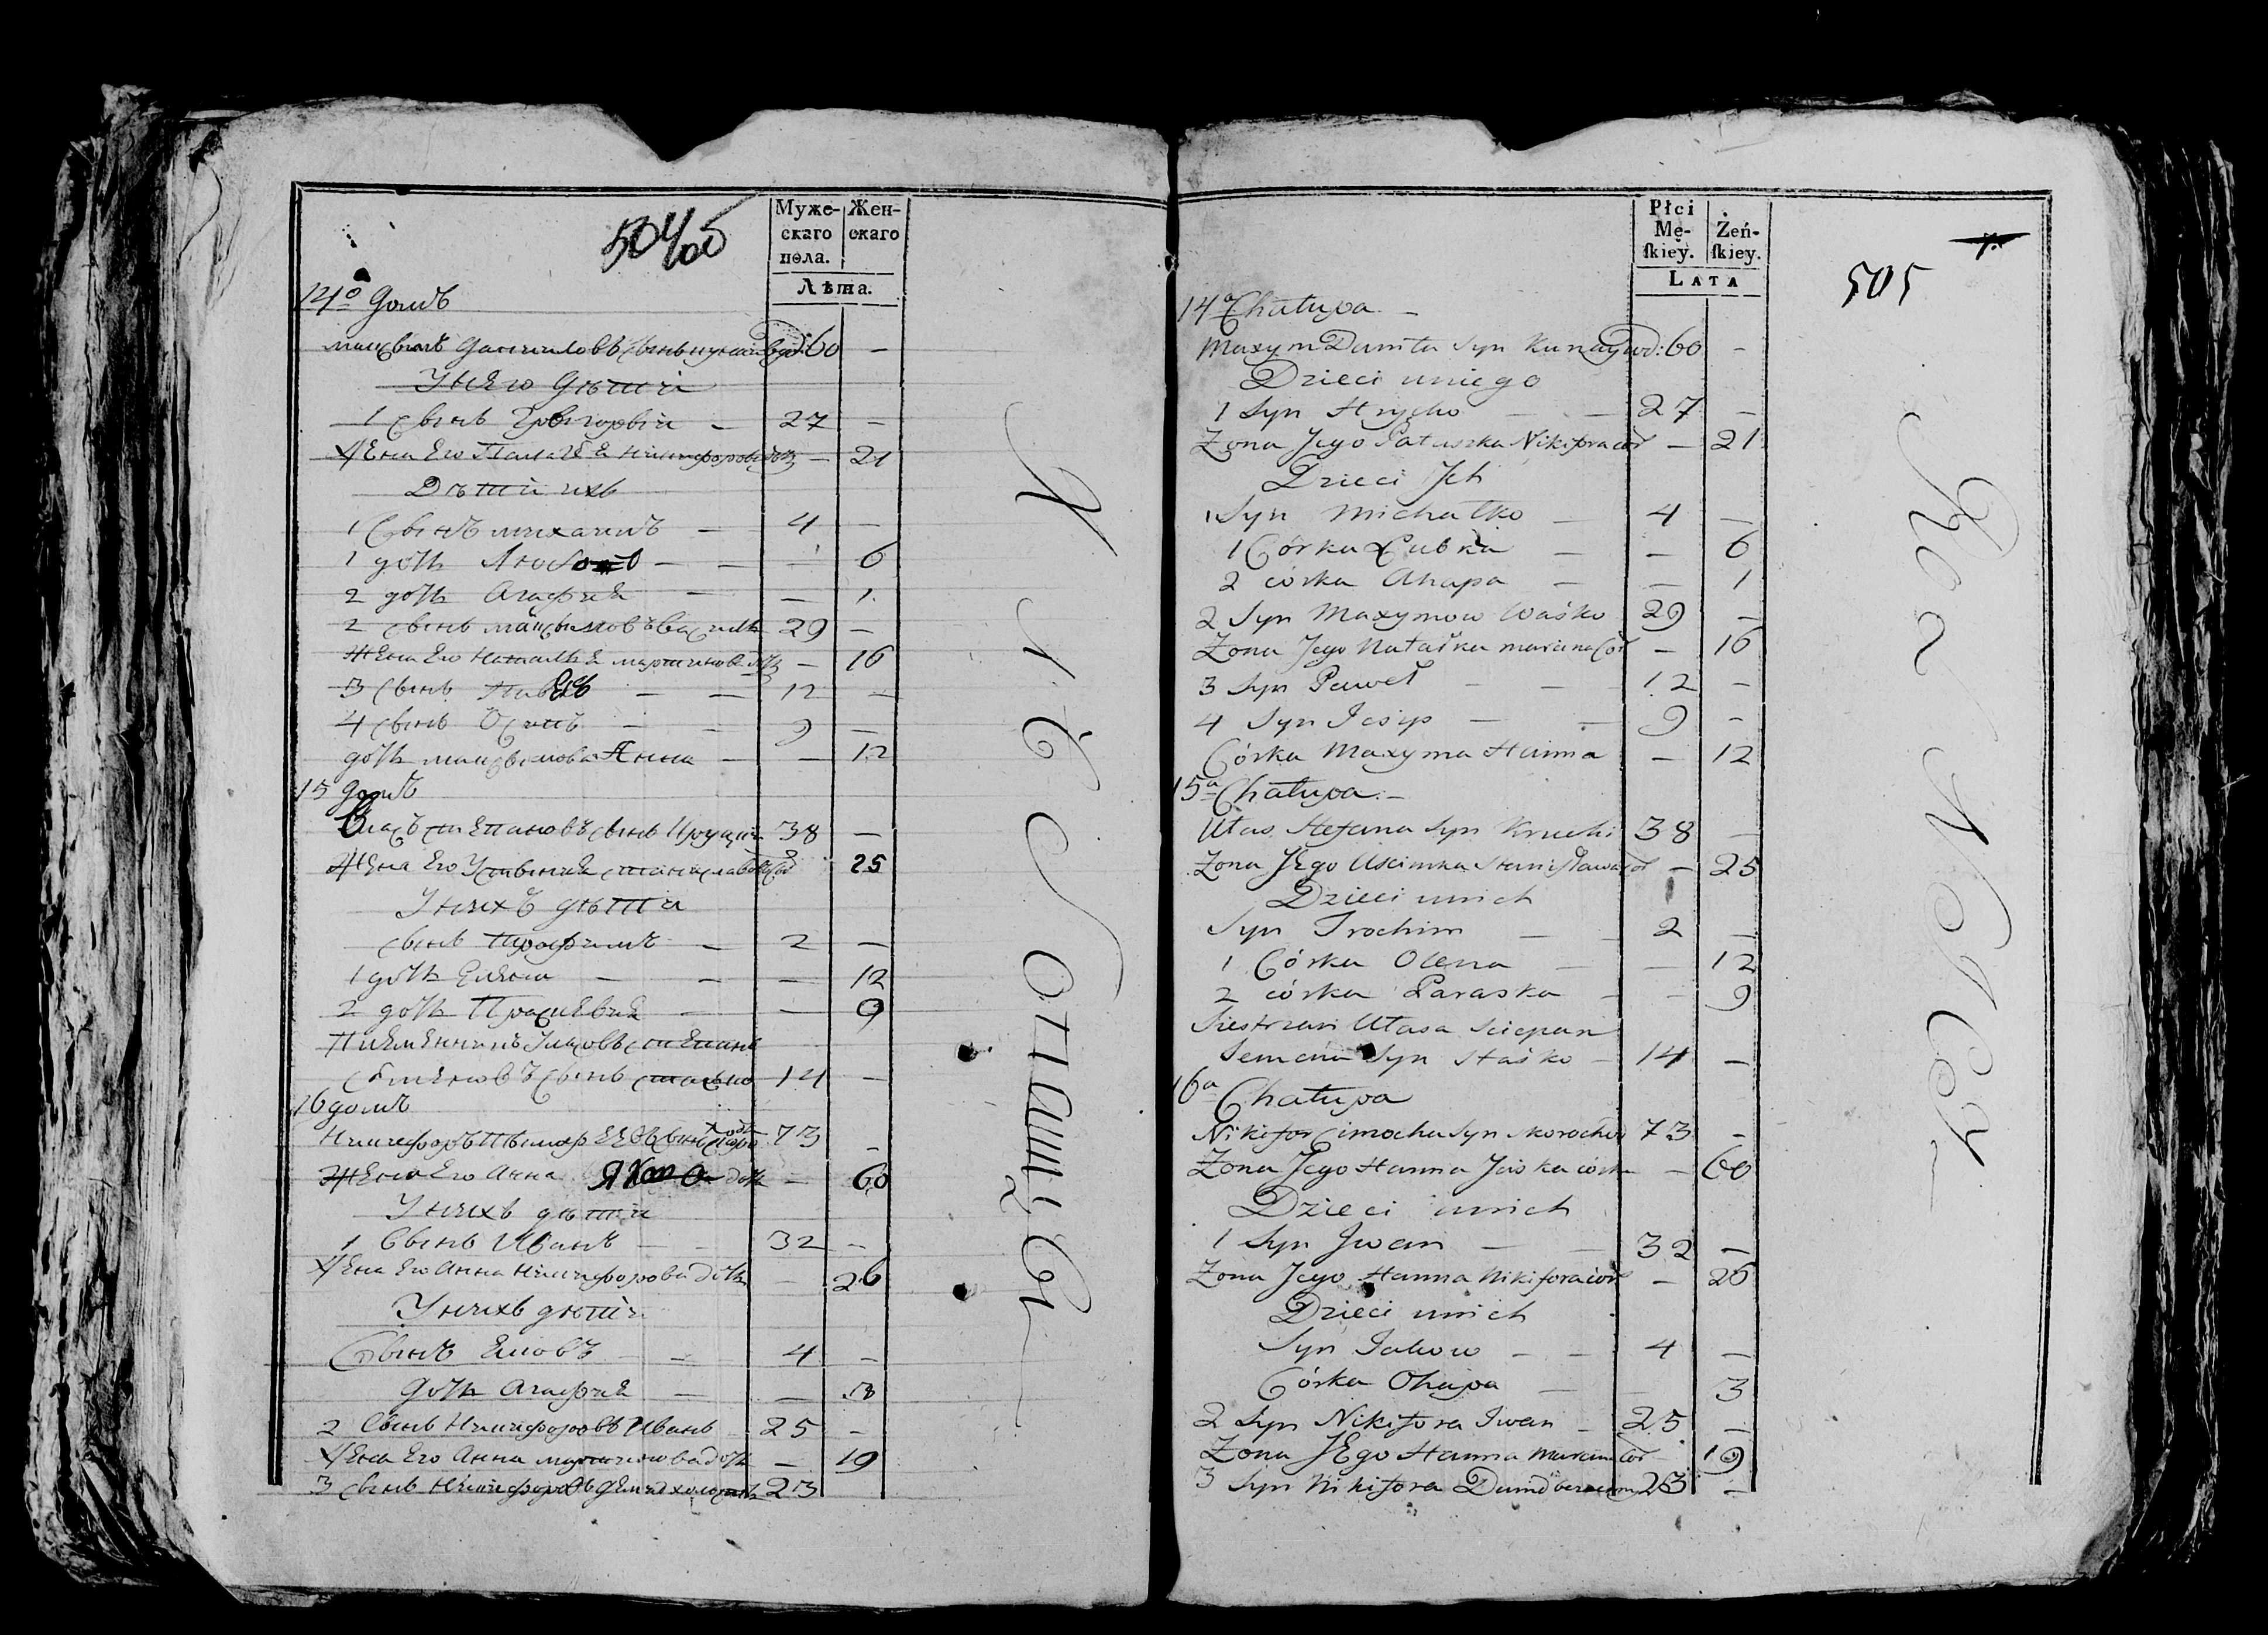 504 об
Муже-
скаго
пола.
Жен-
скаго
Лѣта.
14о Домъ
Максымъ Даниловъ сынъ вдо: 60 —
У него дѣти
1 сынъ Григорій — 27 —
Жена Его Палагея Никифорова дочь — 21
Дѣти ихъ
1 Сынъ михаилъ — 4 —
1 дочь Любовъ — — — 6
2 дочь Агафия — — 1
2 сынъ максымовъ Василь 29 —
Жена Его Наталья мартинова дочь — 16
3 сынъ Павелъ — — 12 —
4 сынъ Осипъ — — 9 —
дочь максымова Анна — — 12
15 Домъ
Власъ степановъ сынъ 38 —
Жена Его Устиния станиславова 25
У нихъ дѣти
сынъ Трофимъ — 2 —
1 дочь Елена — — — 12
2 дочь Прасковия — — 9
Племенникъ степанъ
сынъ стасько 14 —
16 домъ
Никифоръ сынъ 73 —
Жена Его Анна дочь — 60
У нихъ дѣти
1 Сынъ Иванъ — — 32 —
Жена Его Анна Никифорова дочь — 26
У нихъ дѣти
Сынъ Яковъ — 4 —
Дочь Агафия — — 3
2 Сынъ Никифоровъ Иванъ 25 —
Жена Его Анна мартинова дочь — 19
3 сынъ Никифоровъ 23
505
Płci
Mę-
ſkiey.
Żeń-
ſkiey.
LATA
14a Chałupa —
Maxym Daniła Syn wd: 60 —
Dzieci uniego
1 Syn Hryćko — — 27 —
Zona Jego Pałuszka Nikifora cór — 21
Dzieci Jch
1 Syn Michałko — 4 —
1 Córka Lubka — — 6
2 córka Ahapa — — 1
2 Syn Maxymow Waśko 29 —
Zona Jego Natałka marcina Cór — 16
3 Syn Paweł — — 12 —
4 Syn Josyp — — 9 —
Córka Maxyma Hanna — 12
15a Chałupa —
Ułas Stefana Syn 38 —
Zona JEgo Uścimka Stanisława cór — 25
Dzieci unich
Syn Trochim — — 2 —
1 Córka Olena — — 12
2 córka Paraska — — 9
Siestrzan Ułasa Sciepan
Semena Syn Staśko — 14 —
16a Chałupa
Nikifor Cimocha Syn 73 —
Zona Jego Hanna córka — 60
Dzieci unich
1 Syn Jwan — — 32 —
Zona Jego Hanna Nikifora cór — 26
Dzieci unich
Syn Jakow — — 4 —
Córka Ohapa — — 3
2 Syn Nikifora Iwan — 25 —
Zona JEgo Hanna Marcina cór 19
3 Syn Nikifora 23 —